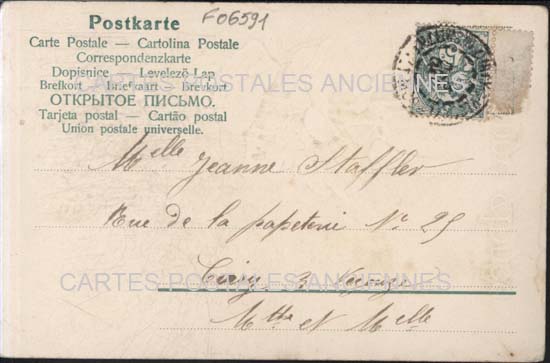 Postkarte
F06591
Carte Postale — Cartolina Postale
Correspondenzkarte
Dopisnice — Levelező-Lap
Brefkort — Briefkaart — Brevkort
ОТКРЫТОЕ ПИСЬМО.
Tarjeta postal — Cartão postal
Union postale universelle.
CARTES POSTALES ANCIENNES
Melle Jeanne Staffler
Rue de la papeterie No 25
CARTES POSTALES ANCIENNES
Cirey s/ Vezouze
Mthe et Melle